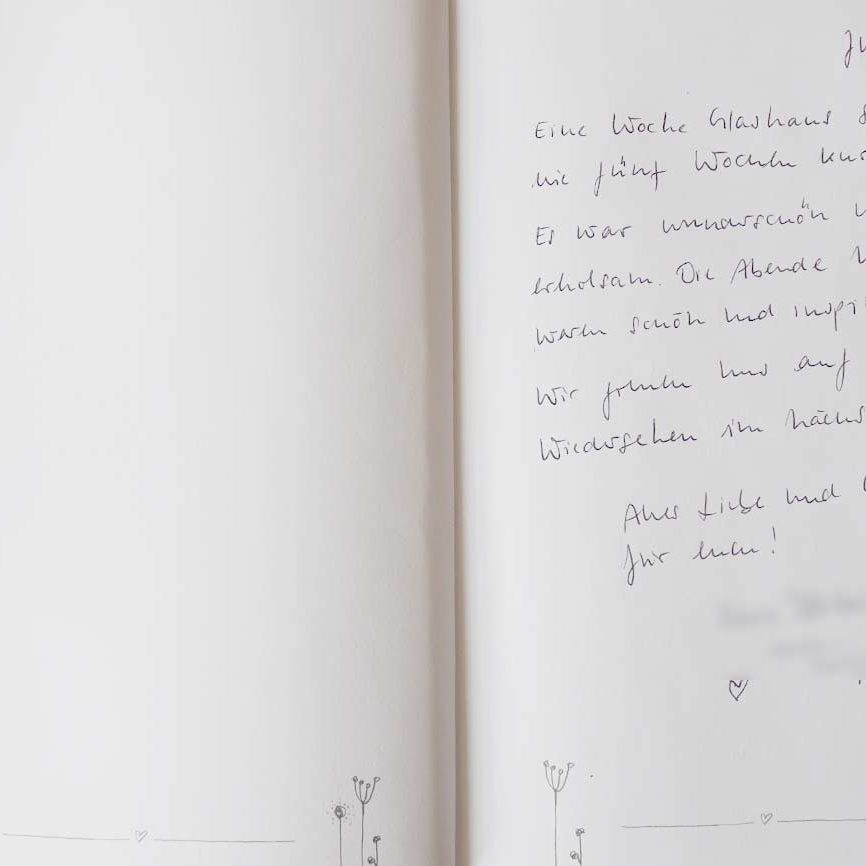 Ju
Eine Woche Glashaus s
wie fünf Wochen kur
Es war wunderschön u
erholsam. Die Abende
waren schön und inspi
Wir freuen uns auf
Wiedersehen im nächs
Alles Liebe und
für euch!